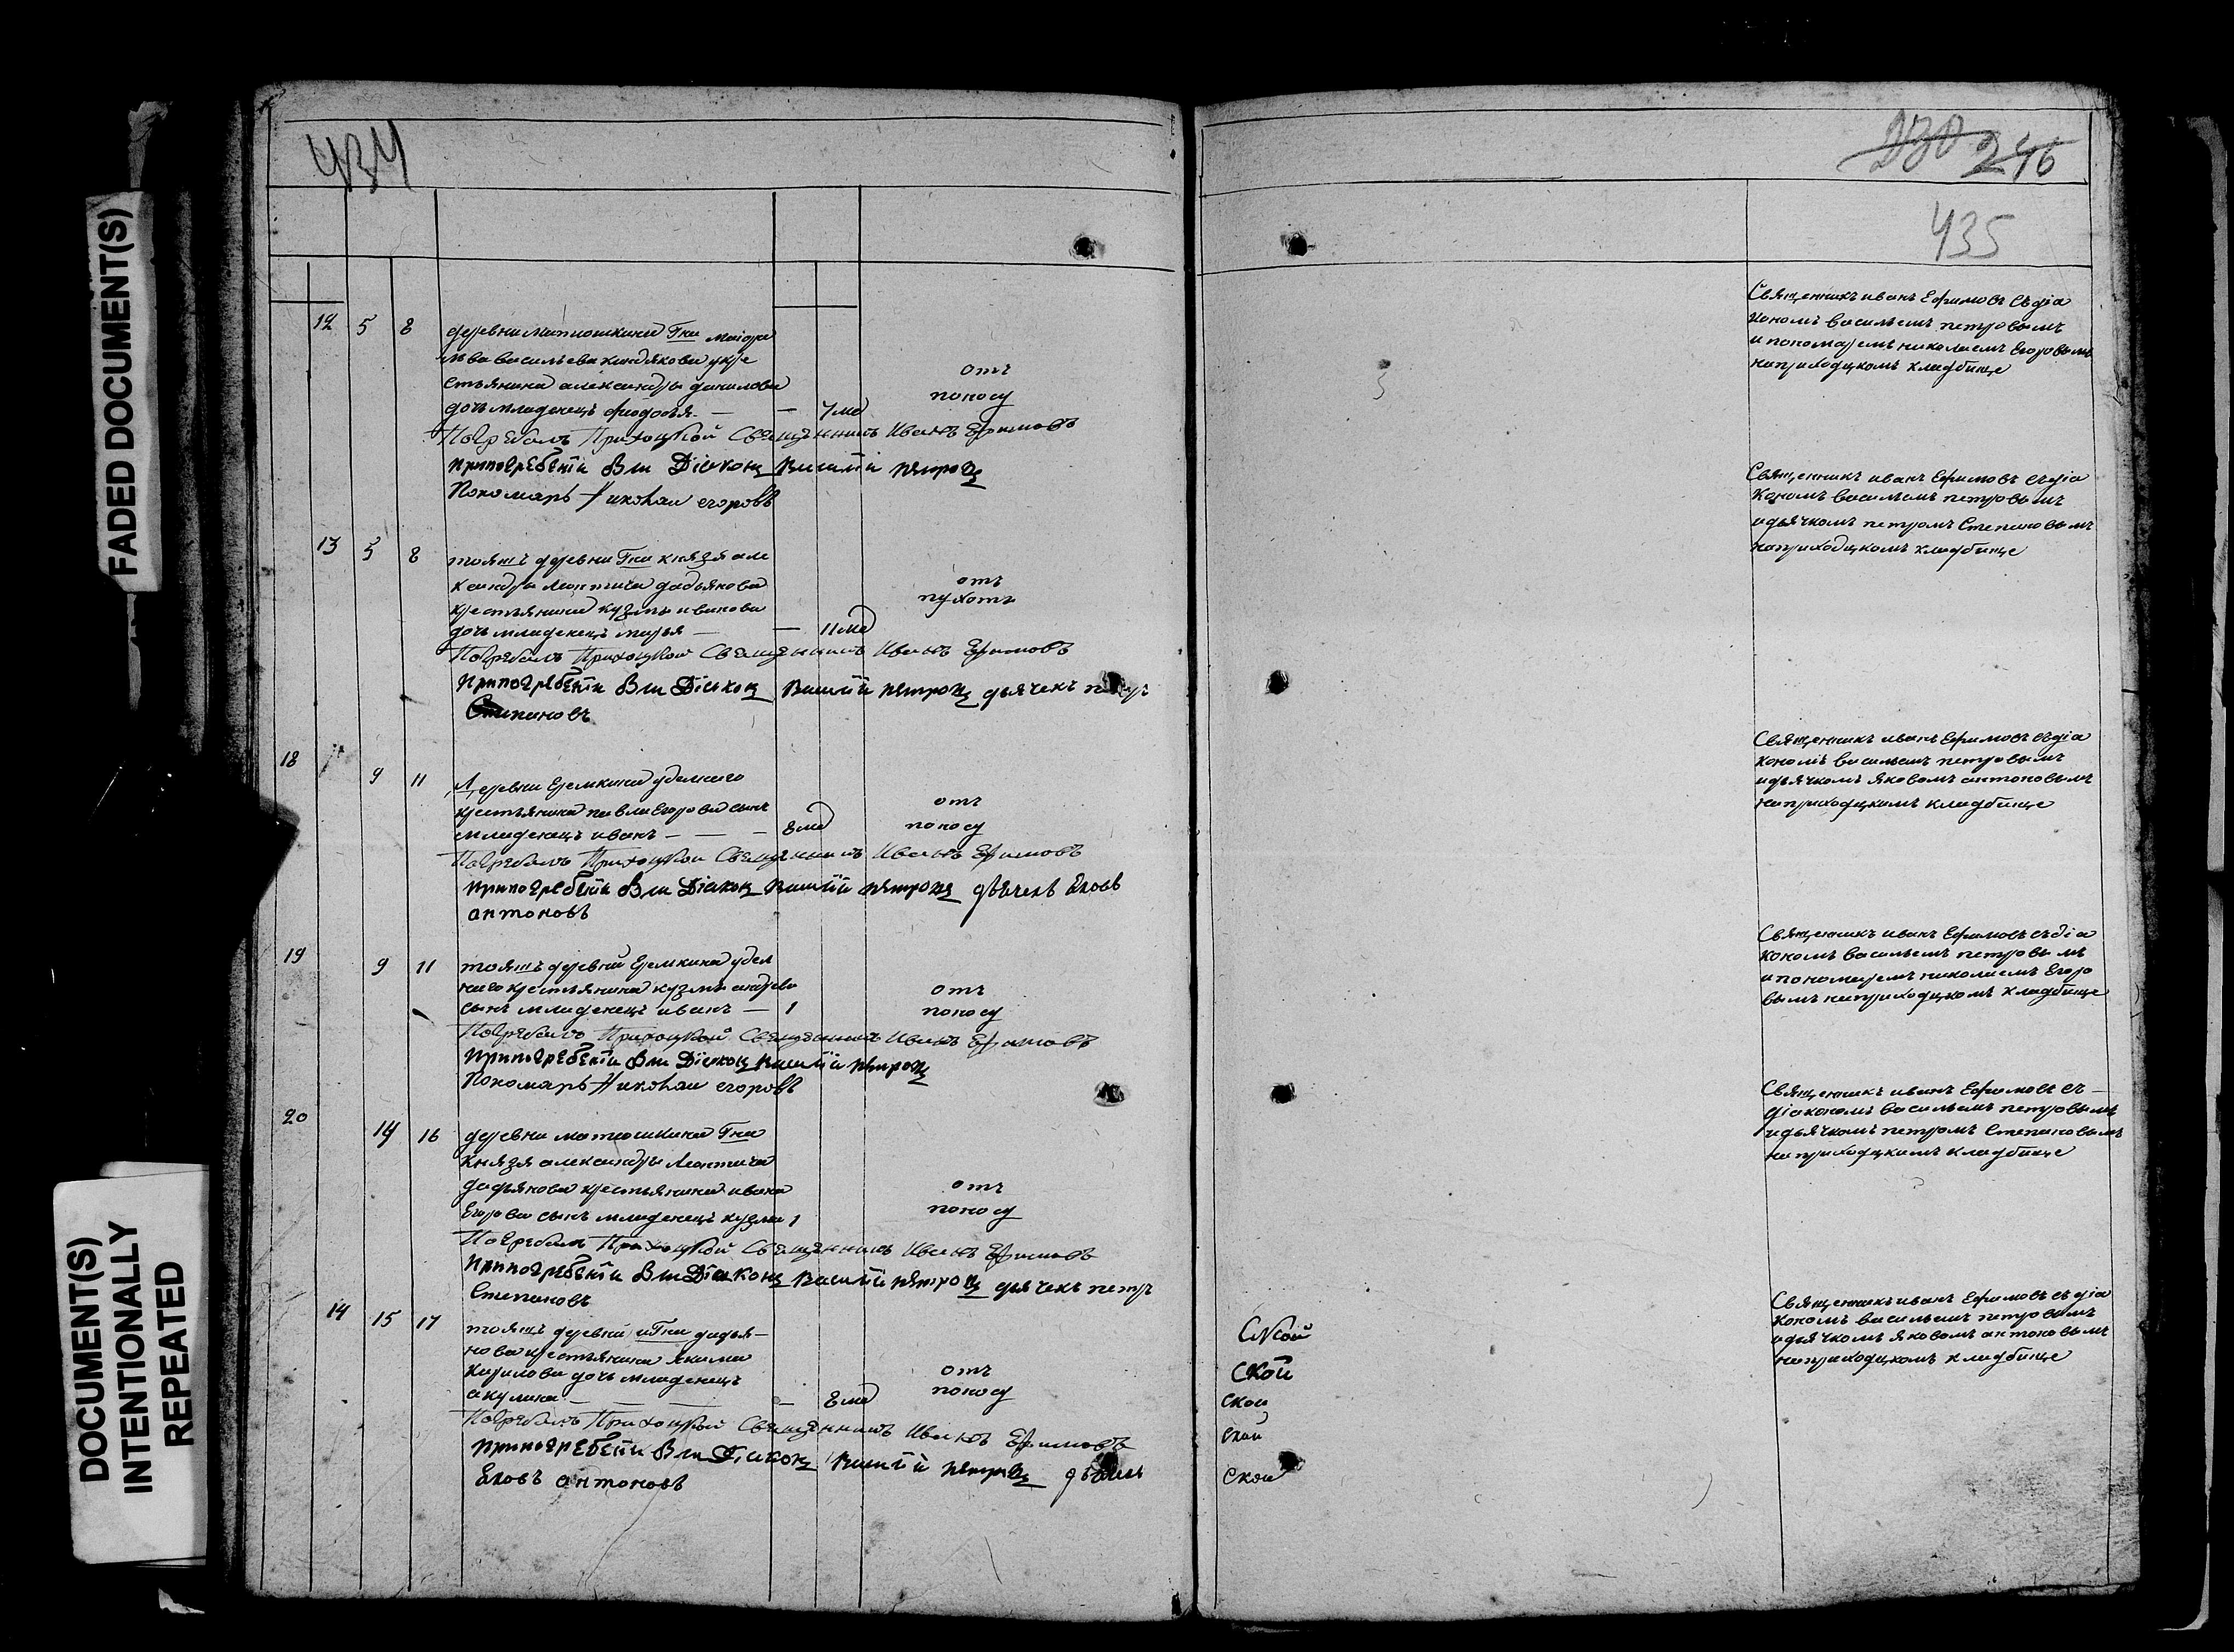 FADED DOCUMENT(S)
DOCUMENT(S)
INTENTIONALLY
REPEATED
434
12 5 8 деревни матюшкина Гна маіора
льва васильева кандякова укре
стьянина александра данилова
дочь младенецъ феодосья — — 7 ме
отъ
поносу
Погребалъ Приходской Священникъ Иванъ Ефимовъ
при погребеніи были Діаконъ Василій петровъ
Пономарь Николаи егоровъ
13 5 8 тояжъ деревни Гна князя але
ксандра Леонтича дадьянова
крестьянина кузмы иванова
дочь младенецъ марья — — 11 ме
отъ
пухоты
Погребалъ Приходской Священникъ Иванъ Ефимовъ
при погребеніи были Діаконъ Василій петровъ дьячекъ петръ
Степановъ
18 9 11 Деревни Еремкина уделнаго
крестьянина павла Егорова сынъ
младенецъ иванъ — — — 8 ме
отъ
поносу
Погребалъ Приходской Священникъ Иванъ Ефимовъ
при погребеніи были Діаконъ Василій петровъ дьячекъ Яковъ
антоновъ
19 9 11 тояжъ деревни Еремкина удел
наго крестьянина кузмы андрева
сынъ младенецъ иванъ — 1
отъ
поносу
Погребалъ Приходской Священникъ Иванъ Ефимовъ
при погребеніи были Діаконъ Василій петровъ
Пономарь Николаи егоровъ
20 14 16 деревни матюшкина Гна
князя александра Леонтича
дадьянова крестьянина ивана
Егорова сынъ младенецъ кузма 1
отъ
поносу
Погребалъ Приходской Священникъ Иванъ Ефимовъ
при погребеніи были Діаконъ Василій петровъ дьячекъ петръ
Степановъ
14 15 17 тояжъ деревни иГна дадья—
нова крестьянина якима
кирилова дочь младенецъ
акулина — — — — 8 ме
отъ
поносу
Погребалъ Приходской Священникъ Иванъ Ефимовъ
при погребеніи были Діаконъ Василій петровъ дьячекъ
Яковъ антоновъ
230 246
435
Священникъ иванъ Ефимовъ съ діа
кономъ васильемъ петровымъ
и пономаремъ николаемъ Егоровымъ
наприходцкомъ кладбище
Священникъ иванъ Ефимовъ съ діа
кономъ васильемъ петровымъ
идьячкомъ петромъ Степановымъ
наприходцкомъ кладбище
Священникъ иванъ Ефимовъ съ діа
кономъ васильемъ петровымъ
идьячкомъ яковомъ антоновымъ
наприходцкомъ кладбище
Священникъ иванъ Ефимовъ съ діа
кономъ васильемъ петровымъ
и пономаремъ николаемъ Егоро
вымъ наприходцкомъ кладбище
Священникъ иванъ Ефимовъ съ —
діакономъ васильемъ петровымъ
идьячкомъ петромъ Степановымъ
наприходцкомъ кладбище
Священникъ иванъ Ефимовъ съ діа
кономъ васильемъ петровымъ
идьячкомъ яковомъ антоновымъ
наприходцкомъ кладбище
Ской
ской
скои
скои
скои